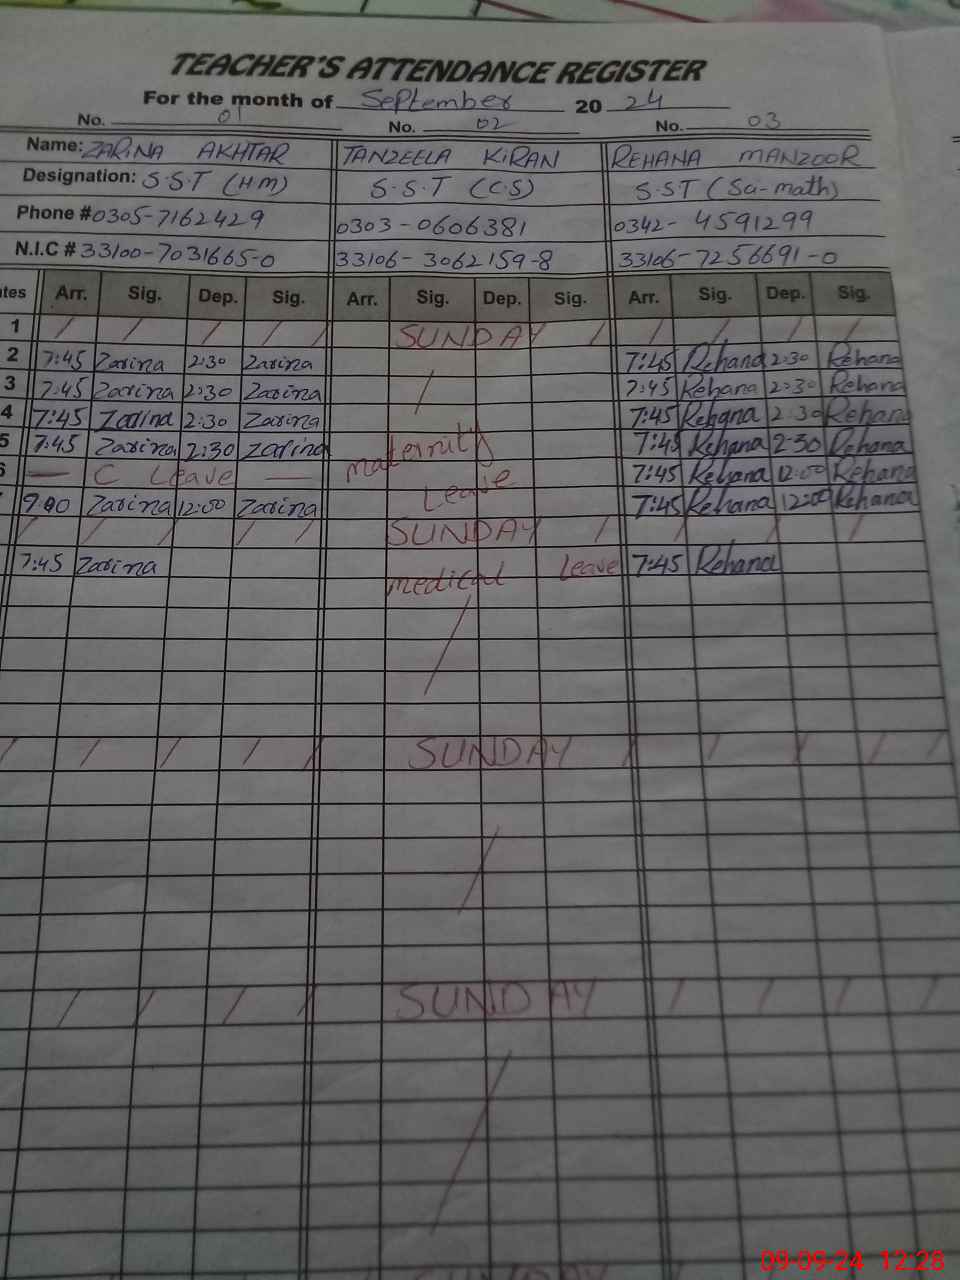 TEACHER'S ATTENDANCE REGISTER
For the month of September 2024
No. 01 No. 02 No. 03
Name: ZARINA AKHTAR TANZEELA KIRAN REHANA MANZOOR
Designation: S.S.T (HM) S.S.T (C.S) S.ST (Sci-math)
Phone # 0305-7162429 0303-0606381 0342-4591299
N.I.C # 33100-7031665-0 33106-3062159-8 33106-7256691-0
tes Arr. Sig. Dep. Sig. Arr. Sig. Dep. Sig. Arr. Sig. Dep. Sig.
1 / / / / SUNDAY / / / / /
2 7:45 Zarina 2:30 Zarina 7:45 Rehana 2:30 Rehana
3 7:45 Zarina 2:30 Zarina / 7:45 Rehana 2:30 Rehana
4 7:45 Zarina 2:30 Zarina 7:45 Rehana 2:30 Rehana
5 7:45 Zarina 2:30 Zarina maternity 7:45 Rehana 2:30 Rehana
6 — C Leave — Leave 7:45 Rehana 12:00 Rehana
9:00 Zarina 12:00 Zarina 7:45 Rehana 12:00 Rehana
/ / / / / SUNDAY / / / / /
7:45 Zarina medical Leave 7:45 Rehana
/
/ / / / / SUNDAY / / / / /
/
/ / / / SUNDAY / / / /
/
SUNDAY
09-09-24 12:28